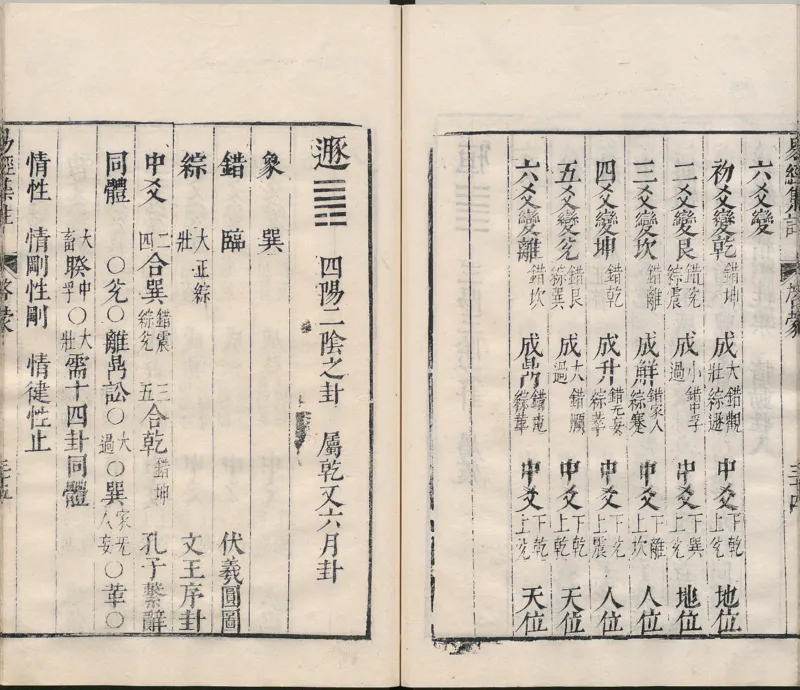 易經集註 啓蒙 三十四
六爻變
初爻變乾 錯坤 成大壯 錯觀綜遯 中爻下乾上兌 地位
二爻變艮 錯兌綜震 成小過 錯中孚 中爻下巽上兌 地位
三爻變坎 錯離 成解 錯家人綜蹇 中爻下離上坎 人位
四爻變坤 錯乾 成升 錯无妄綜萃 中爻下兌上震 人位
五爻變兌 錯艮綜巽 成大過 錯頤 中爻下乾上乾 天位
六爻變離 錯坎 成鼎 錯屯綜革 中爻下乾上兌 天位
遯 ䷠ 四陽二陰之卦 屬乾又六月卦
象 巽
錯 臨 伏羲圓圖
綜 大壯 正綜 文王序卦
中爻 二四合巽 錯震綜兌 三五合乾 錯坤 孔子繫辭
同體 ○兌○離鼎訟○大過○巽家人无妄○革○
大畜睽中孚○大壯需十四卦同體
情性 情剛性剛 情健性止
易經集註 啓蒙 三十五